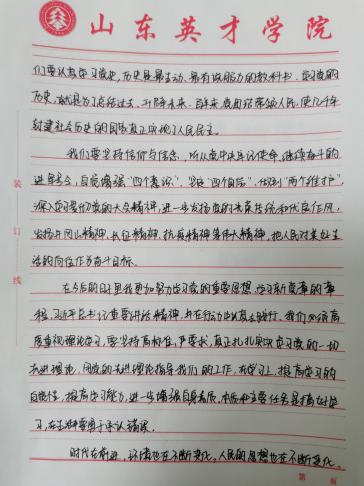 山东英才学院
们要认真学习党史,历史是最生动、最有说服力的教科书。学习党的
历史,就是为了总结过去,开辟未来。百年来,党团结带领人民,使几千年
封建社会历史的国家真正实现了人民民主。
我们要坚持信仰与信念,听从党中央牢记使命,继续奋斗的
进军号令,自觉增强"四个意识",坚定"四个自信",做到"两个维护",
深入学习贯彻党的大会精神,进一步发扬党的光荣传统和优良作风,
发扬井冈山精神、长征精神、抗疫精神等伟大精神,把人民对美好生
活的向往作为奋斗目标。
在今后的日子里我更加努力学习党的重要思想,学习新党章的章
程,习近平总书记重要讲话精神,并在行动中认真去践行。我们必须高
度重视理论学习,要坚持高标准,严要求,真正扎扎实实学习党的一切
先进理论,用党的先进理论指导我们的工作。在学习上,提高学习的
自觉性,提高学习能力,进一步增强自身素质,本质和主要任务是搞好学
习,在生活中要勇于承认错误。
时代在前进,环境也在不断变化,人民的思想也在不断变
装
订
线
第 页